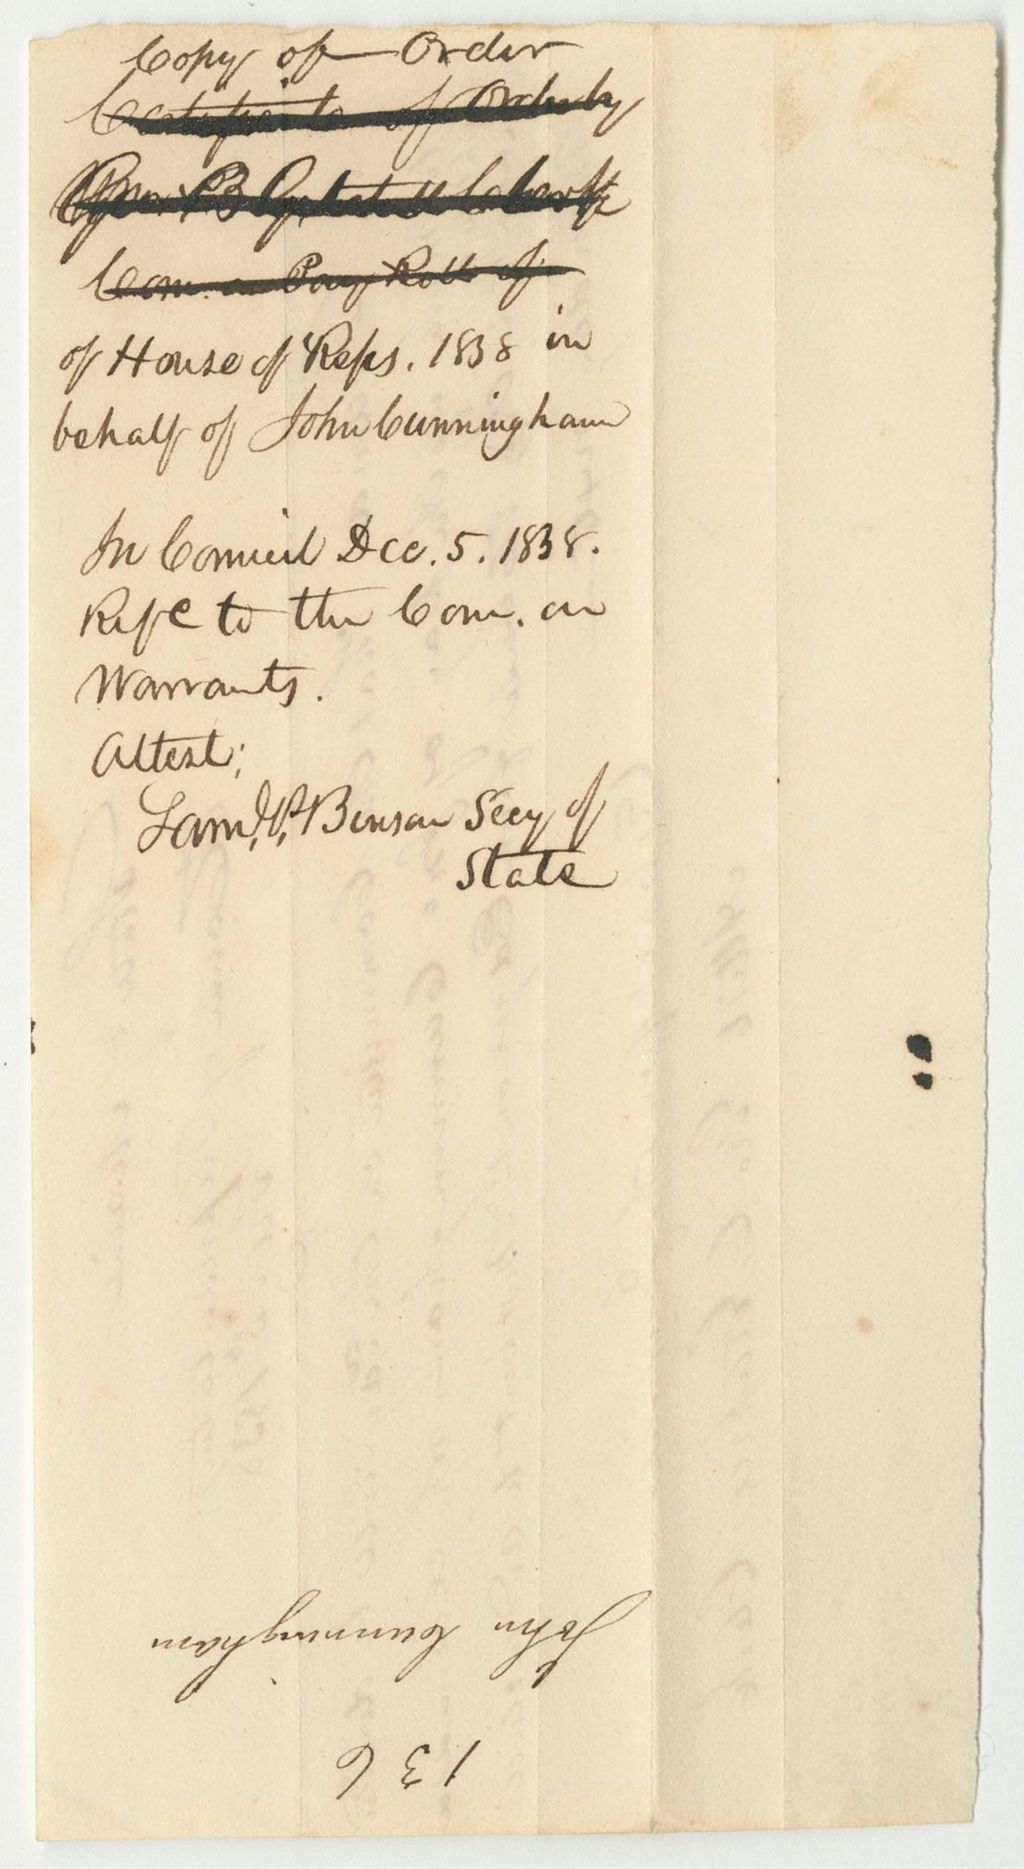 Copy of Order
Certificate of Order by
of House of Reps. 1838 in
behalf of John Cunningham
In Council Dec. 5. 1838.
to the Com. on
Warrants.
Attest;
Saml. P. Benson Secy of
State
John Cunningham
136